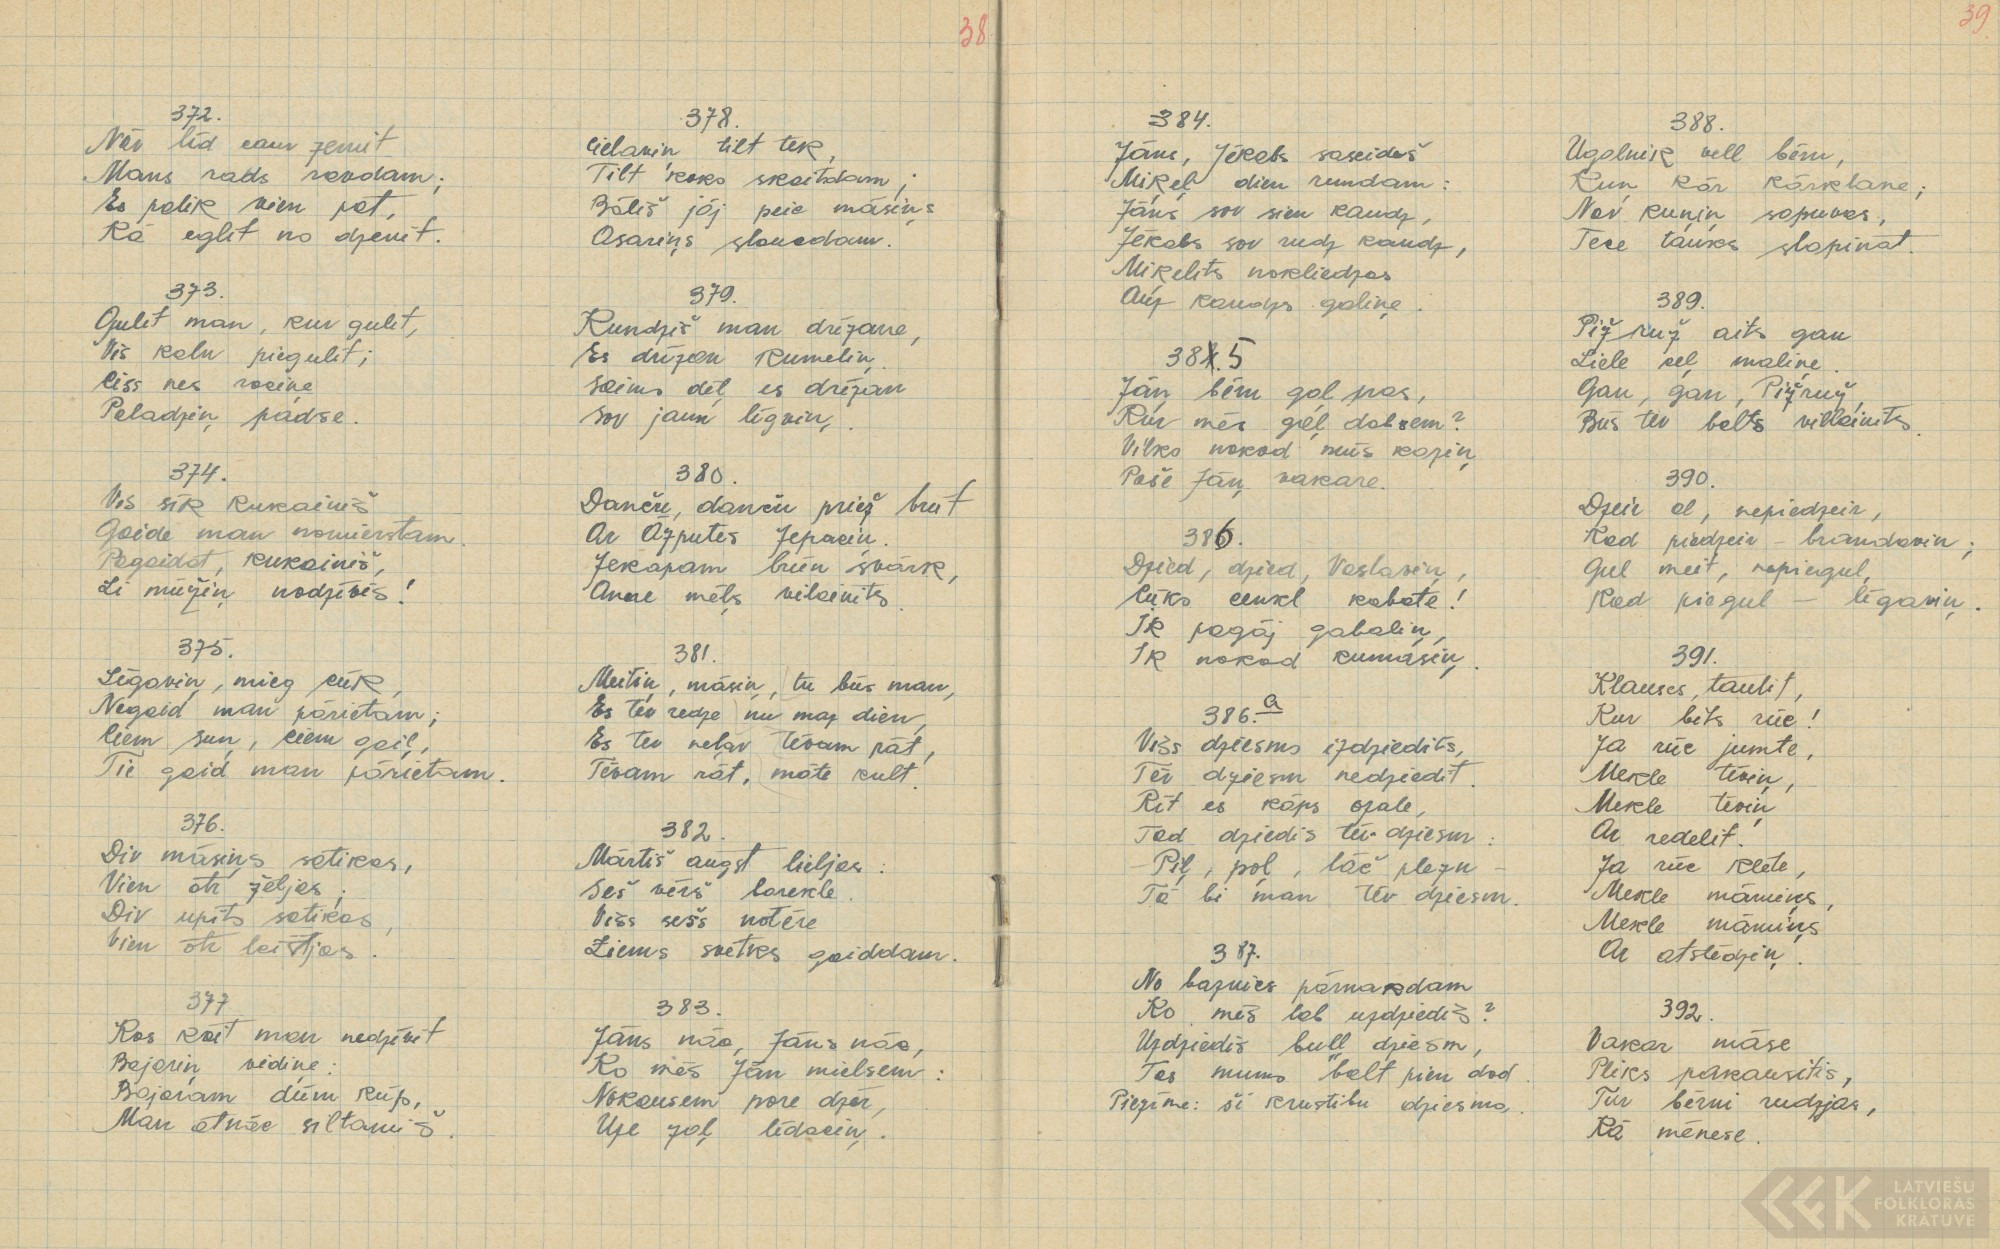 38
372.
Nāv līd caur zemit
Mans rads raudam;
Es palik vien pat,
Kā eglīt no dzenīt.
373.
Gulit man, kur gulit,
Viš kaln piegulit;
Ciss nes rociņe
Peladziņ pādse.
374.
Vis sīk kukainiš
Gaide man nomierstam.
Pagaidat, kukainiš,
Li mūžiņ nodzīvēs!
375.
Līgaviņ, mieg cūk,
Negaid man pārietam;
Ciem suņ, ciem gaiļ,
Tie gaid man pārietam.
376.
Div māsiņs satikas,
Vien otr žēljas;
Div upīts satikās,
Vien otr leistjas.
377
Kas kait man nedzīvit
Bajariņ vidiņe:
Bajaram dūm kūp,
Man atnāc siltamiš.
378.
Cielaviņ tilt tek,
Tilt koks skaitidam;
Bāliš jāj peie māsiņs
Asariņs slaucdam.
379.
Kundziš man drīzane,
Es drīzan kumeliņ.
Saims dēļ es drīzan
Sov jaun līgviņ.
380.
Danču, danču priež brut
Ar Azputes zepaciņ.
Jekapam brūn svārk,
Anne mels vilainits.
381.
Meitiņ, māsiņ, tu būs man,
Es tev redze nu maz dien,
Es tev nelav tēvam rāt,
Tēvam rāt, māte kult.
382.
Mārtiš augst lieljas:
Seš vērš barekle.
Višs sešs notēre
Ziems svetks gaiddam.
383.
Jāns nāc, Jāns nāc,
Ko mēs Jān mielsem:
Nokausem pore dzēr,
Uze zaļ līdaciņ.
39
384.
Jāns, Jēkabs saseidaš
Miķeļ dien rundam:
Jāns sov sien kaudz,
Jēkabs sov rudz kaudz,
Miķelits nokliedzas
Auz kaudzs galiņe.
385
Jāņ bērn gaļ pras,
Kur mēs gaļ dabsem?
Vilks nokod mūs kaziņ
Paše Jāņ vakare.
386.
Dzied, dzied, Vaslaviņ,
Cūks cenkl kabate!
Ik pagāj gabaliņ,
Ik nokod kumasiņ.
386.a
Višs dziesms izdziedits,
Tev dziesm nedziedit.
Rīt es kāps ozale,
Tad dziedis tev dziesm:
– Piļ, poļ, lāč plezn –
Tā bi man tev dziesm.
387.
No baznics pārnakdam
Ko mēs lab uzdziediš?
Uzdziedis bull dziesm,
Tas mums balt pien dod.
Piezīme: šī krustību dziesma.
388.
Ugalnik vell bērn,
Kuņ kār kārklane;
Nav kuņiņ sapuvas,
Tece tauks slapināt.
389.
Piž ruž aits gan
Liele ceļ maliņe.
Gan, gan, Pižruž,
Būs tev balts villainits.
390.
Dzeir al, nepiedzeir,
Kad piedzeir – brandaviņ;
Gul meit, nepiegul,
Kad piegul – līgaviņ.
391.
Klauses, tautit,
Kur bits rūc!
Ja rūc jumte,
Mekle tēviņ,
Mekle tēviņ
Ar redelit.
Ja rūc klēte,
Mekle māmiņs,
Mekle māmiņs
Ar atslēdziņ.
392.
Vakar māse
Pliks pakausitis,
Tur bērni rudzjas,
Kā mēnese.
LATVIEŠU
FOLKLORAS
KRĀTUVE